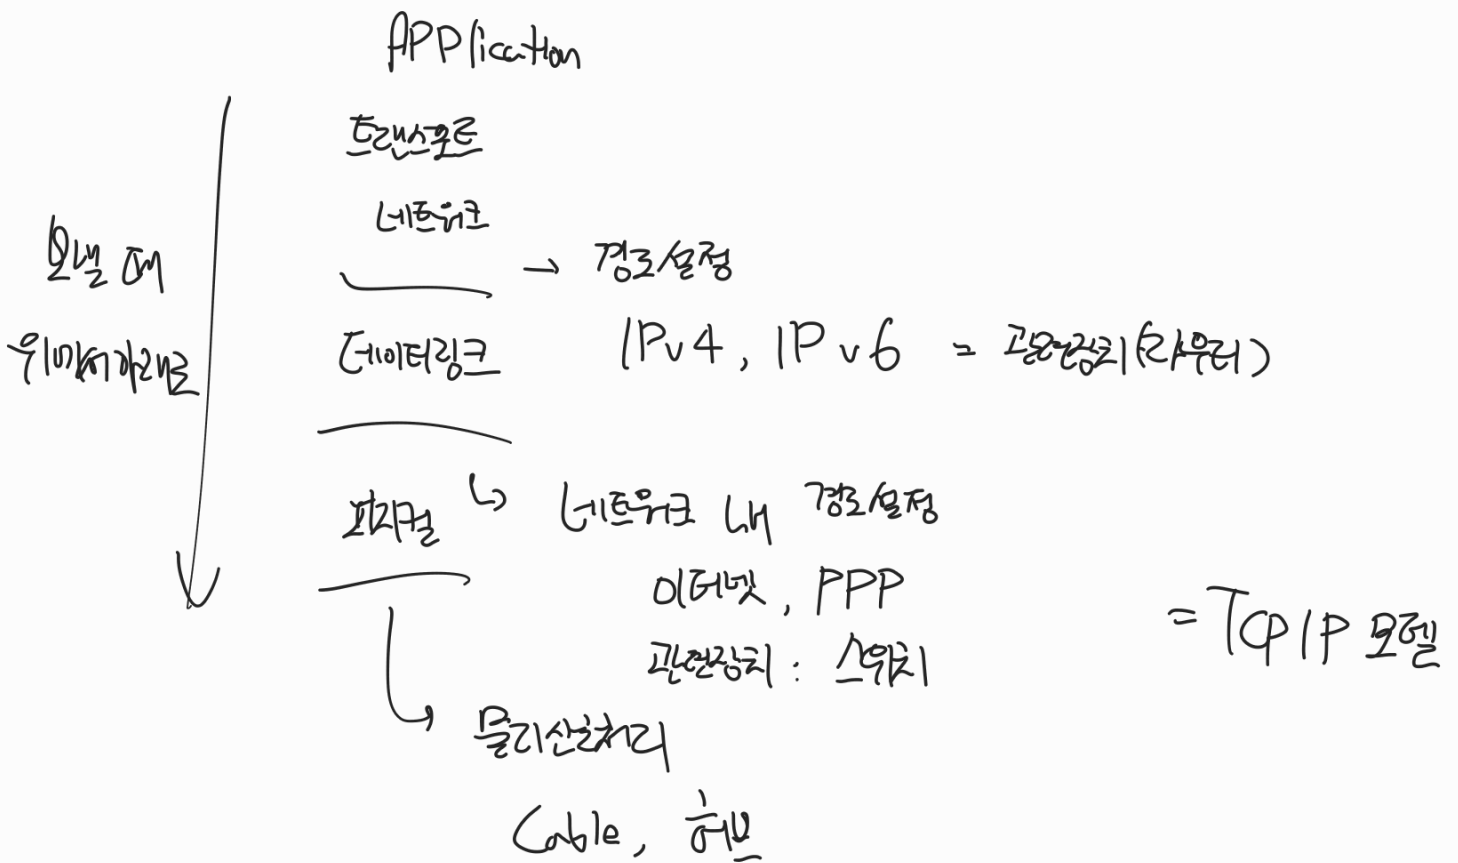 Application
트랜스포트
네트워크
→ 경로설정
보낼 때
위에서아래로
데이터링크
IPv4, IPv6 = 관련장치(라우터)
피지컬
↳ 네트워크 내 경로설정
이더넷, PPP
관련장치 : 스위치
= TCP/IP 모델
Cable, 허브